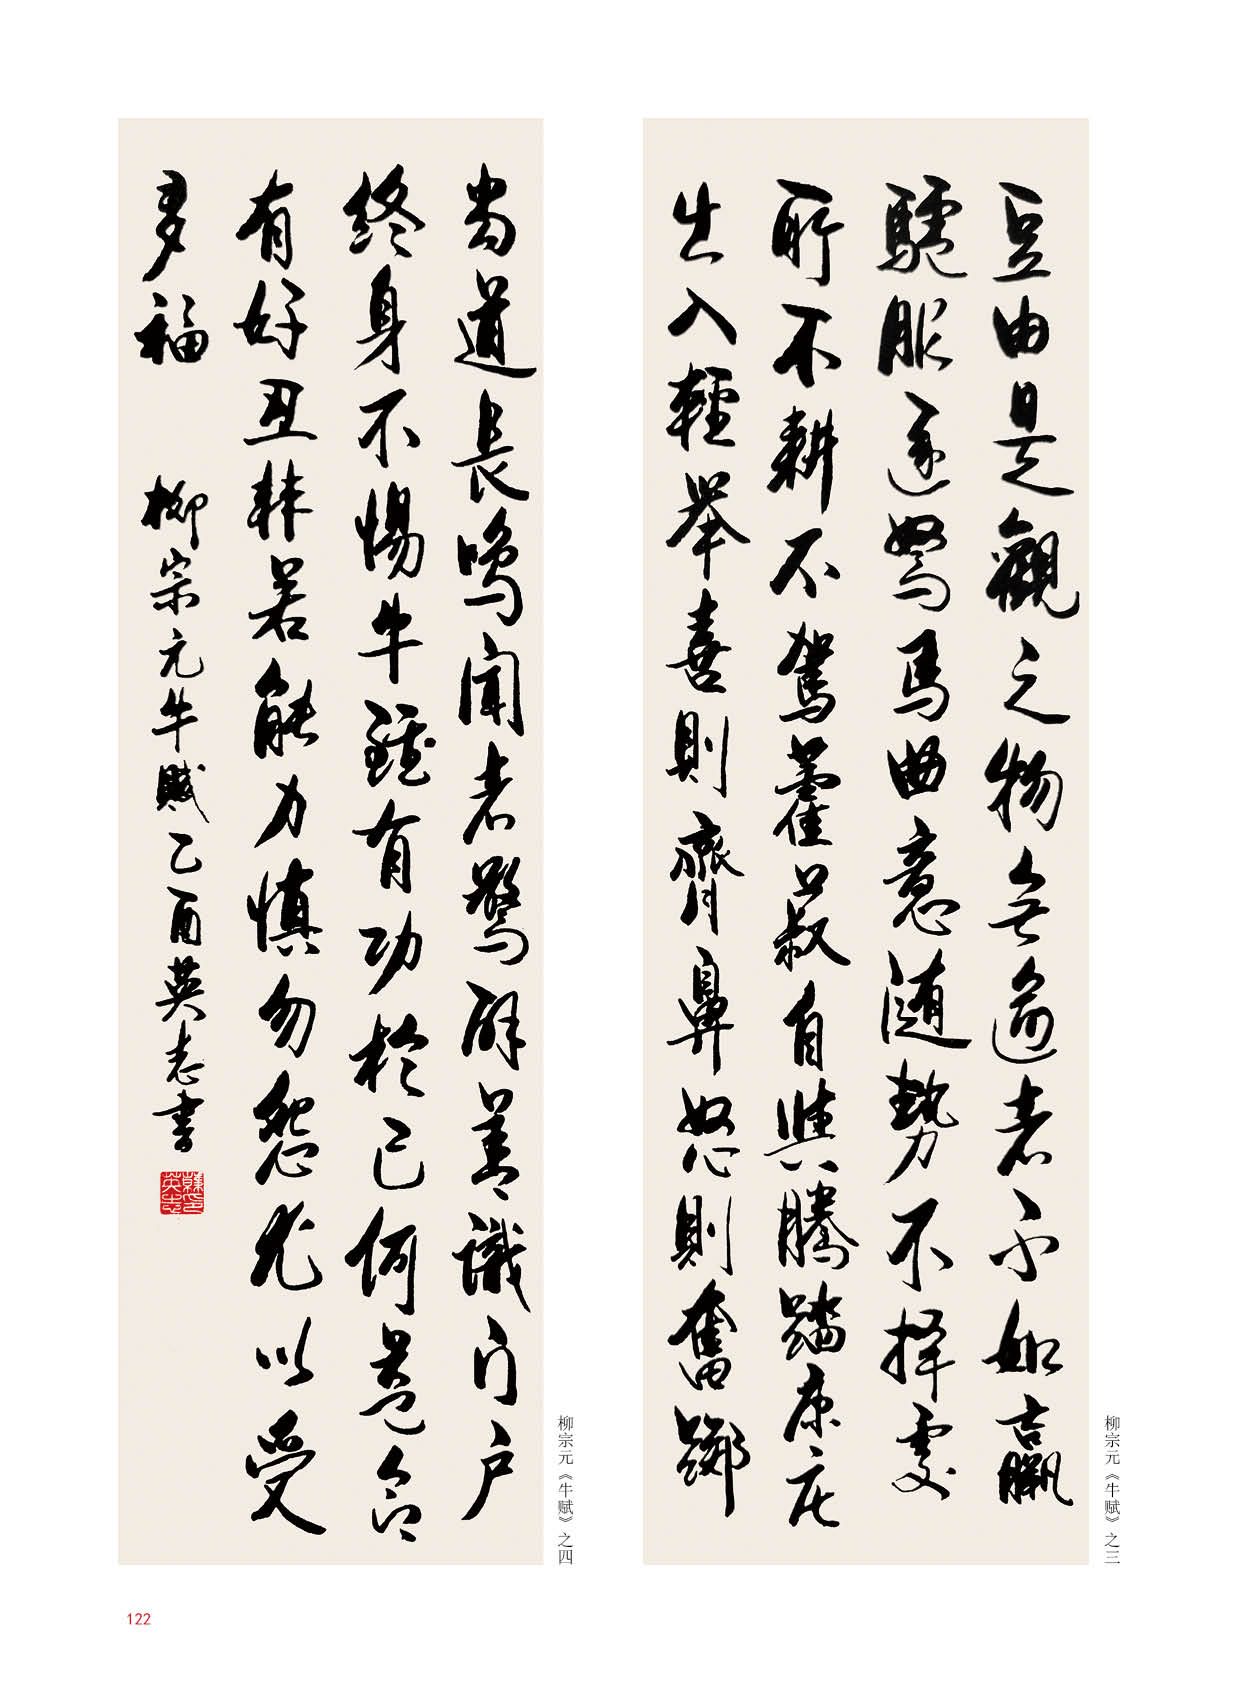 豆由是觀之物無逾者不如羸
驢服逐駑馬曲意隨勢不擇處
所不耕不駕藿菽自與騰踏康莊
出入輕舉喜則齊鼻怒則奮躑
柳宗元《牛赋》之三
當道長鳴聞者驚辟善識门户
終身不惕牛雖有功於己何益命
有好丑秣若能力慎勿怨尤以受
多福
柳宗元牛賦乙酉英志書
柳宗元《牛赋》之四
122